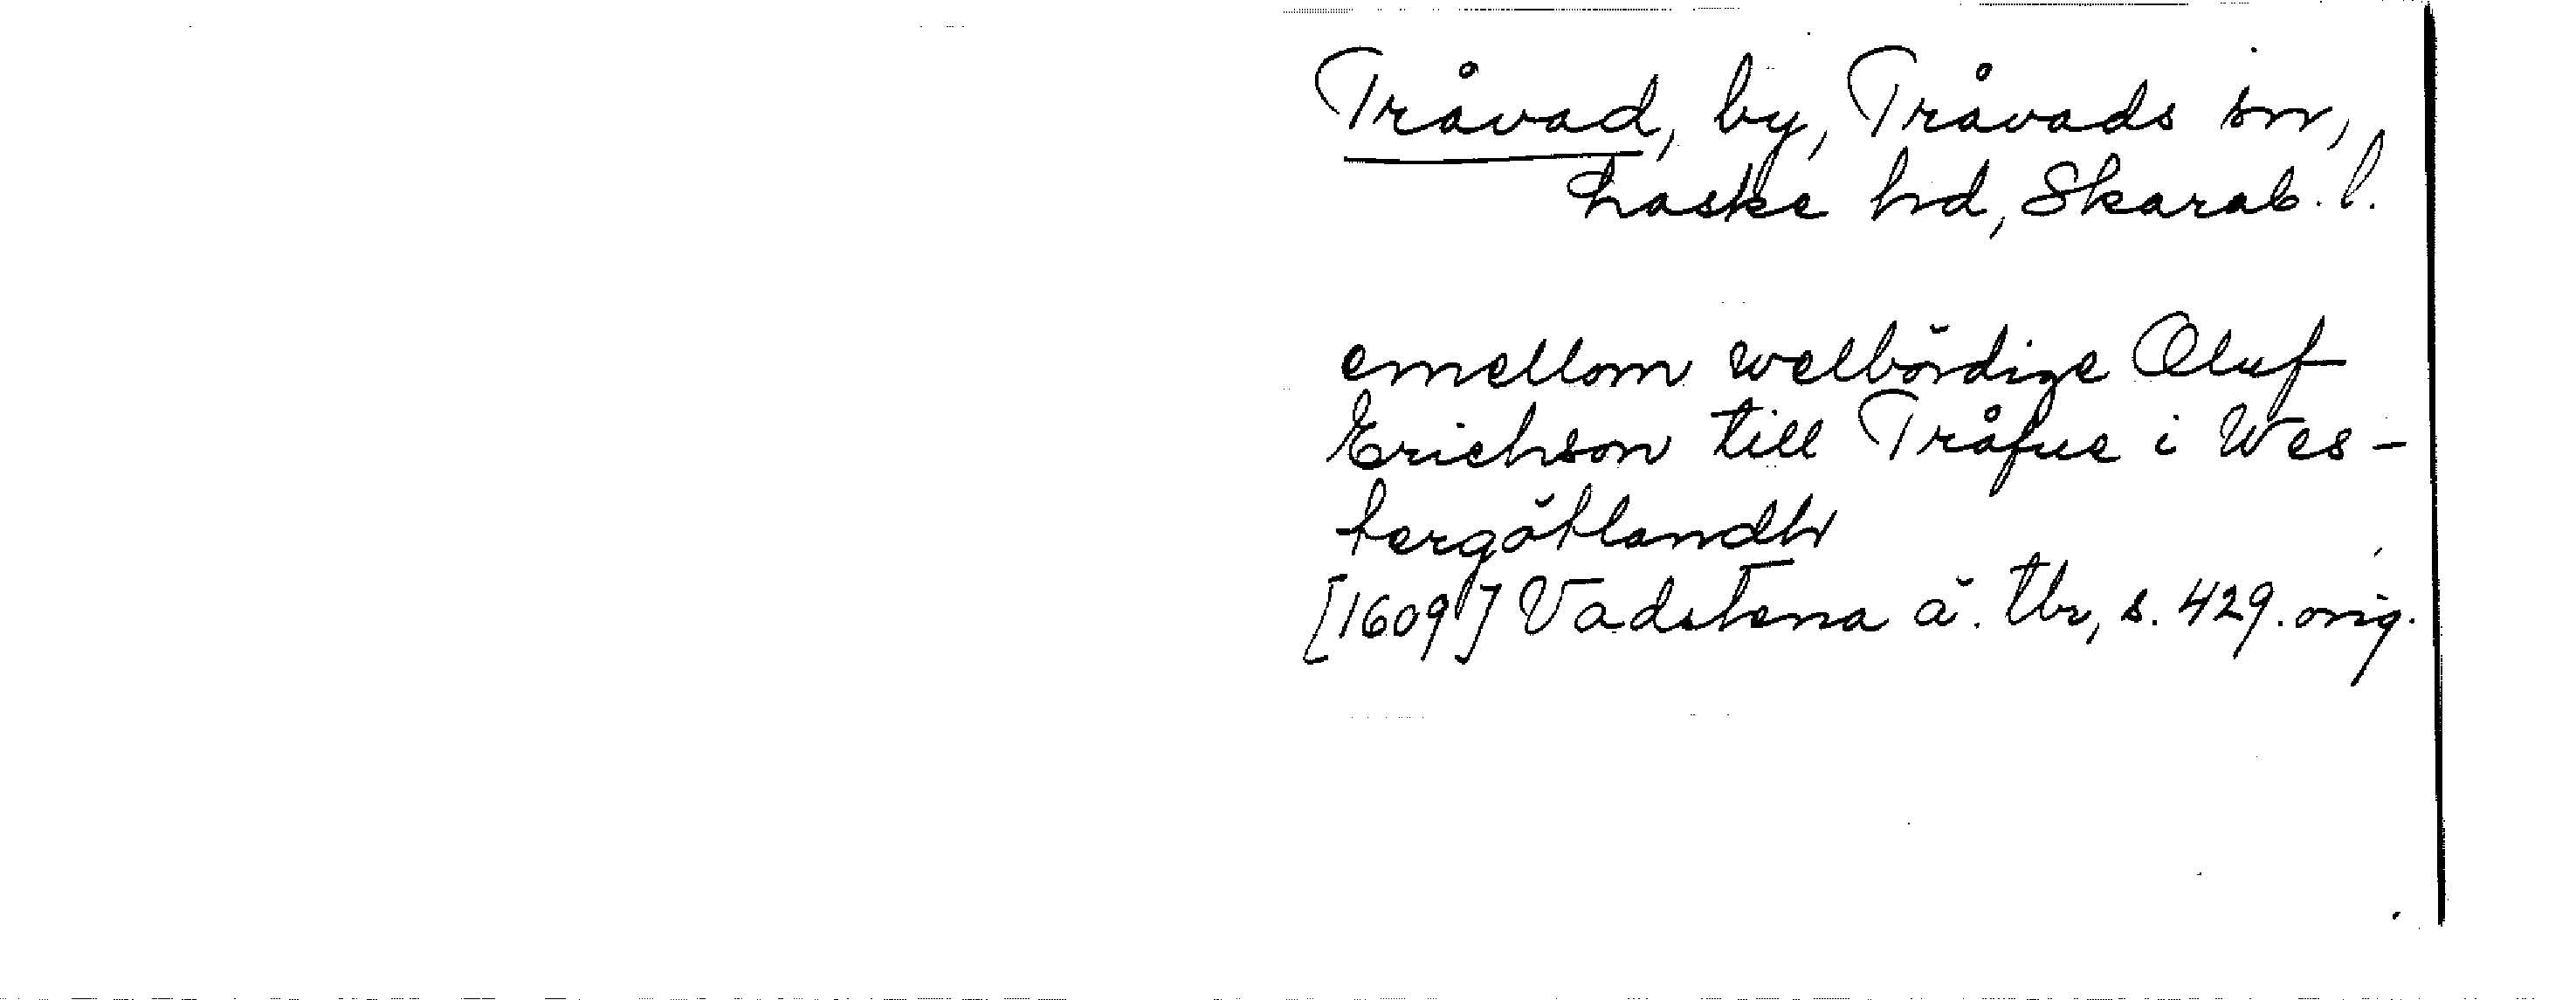 Tråvad, by, Tråvads sn,
Laske hd, Skarab. l.
emellom welbördige Oluf
Erichson till Tråfue i Wes-
tergötlandh
[1609] Vadstena ä. tbr, s. 429. orig.